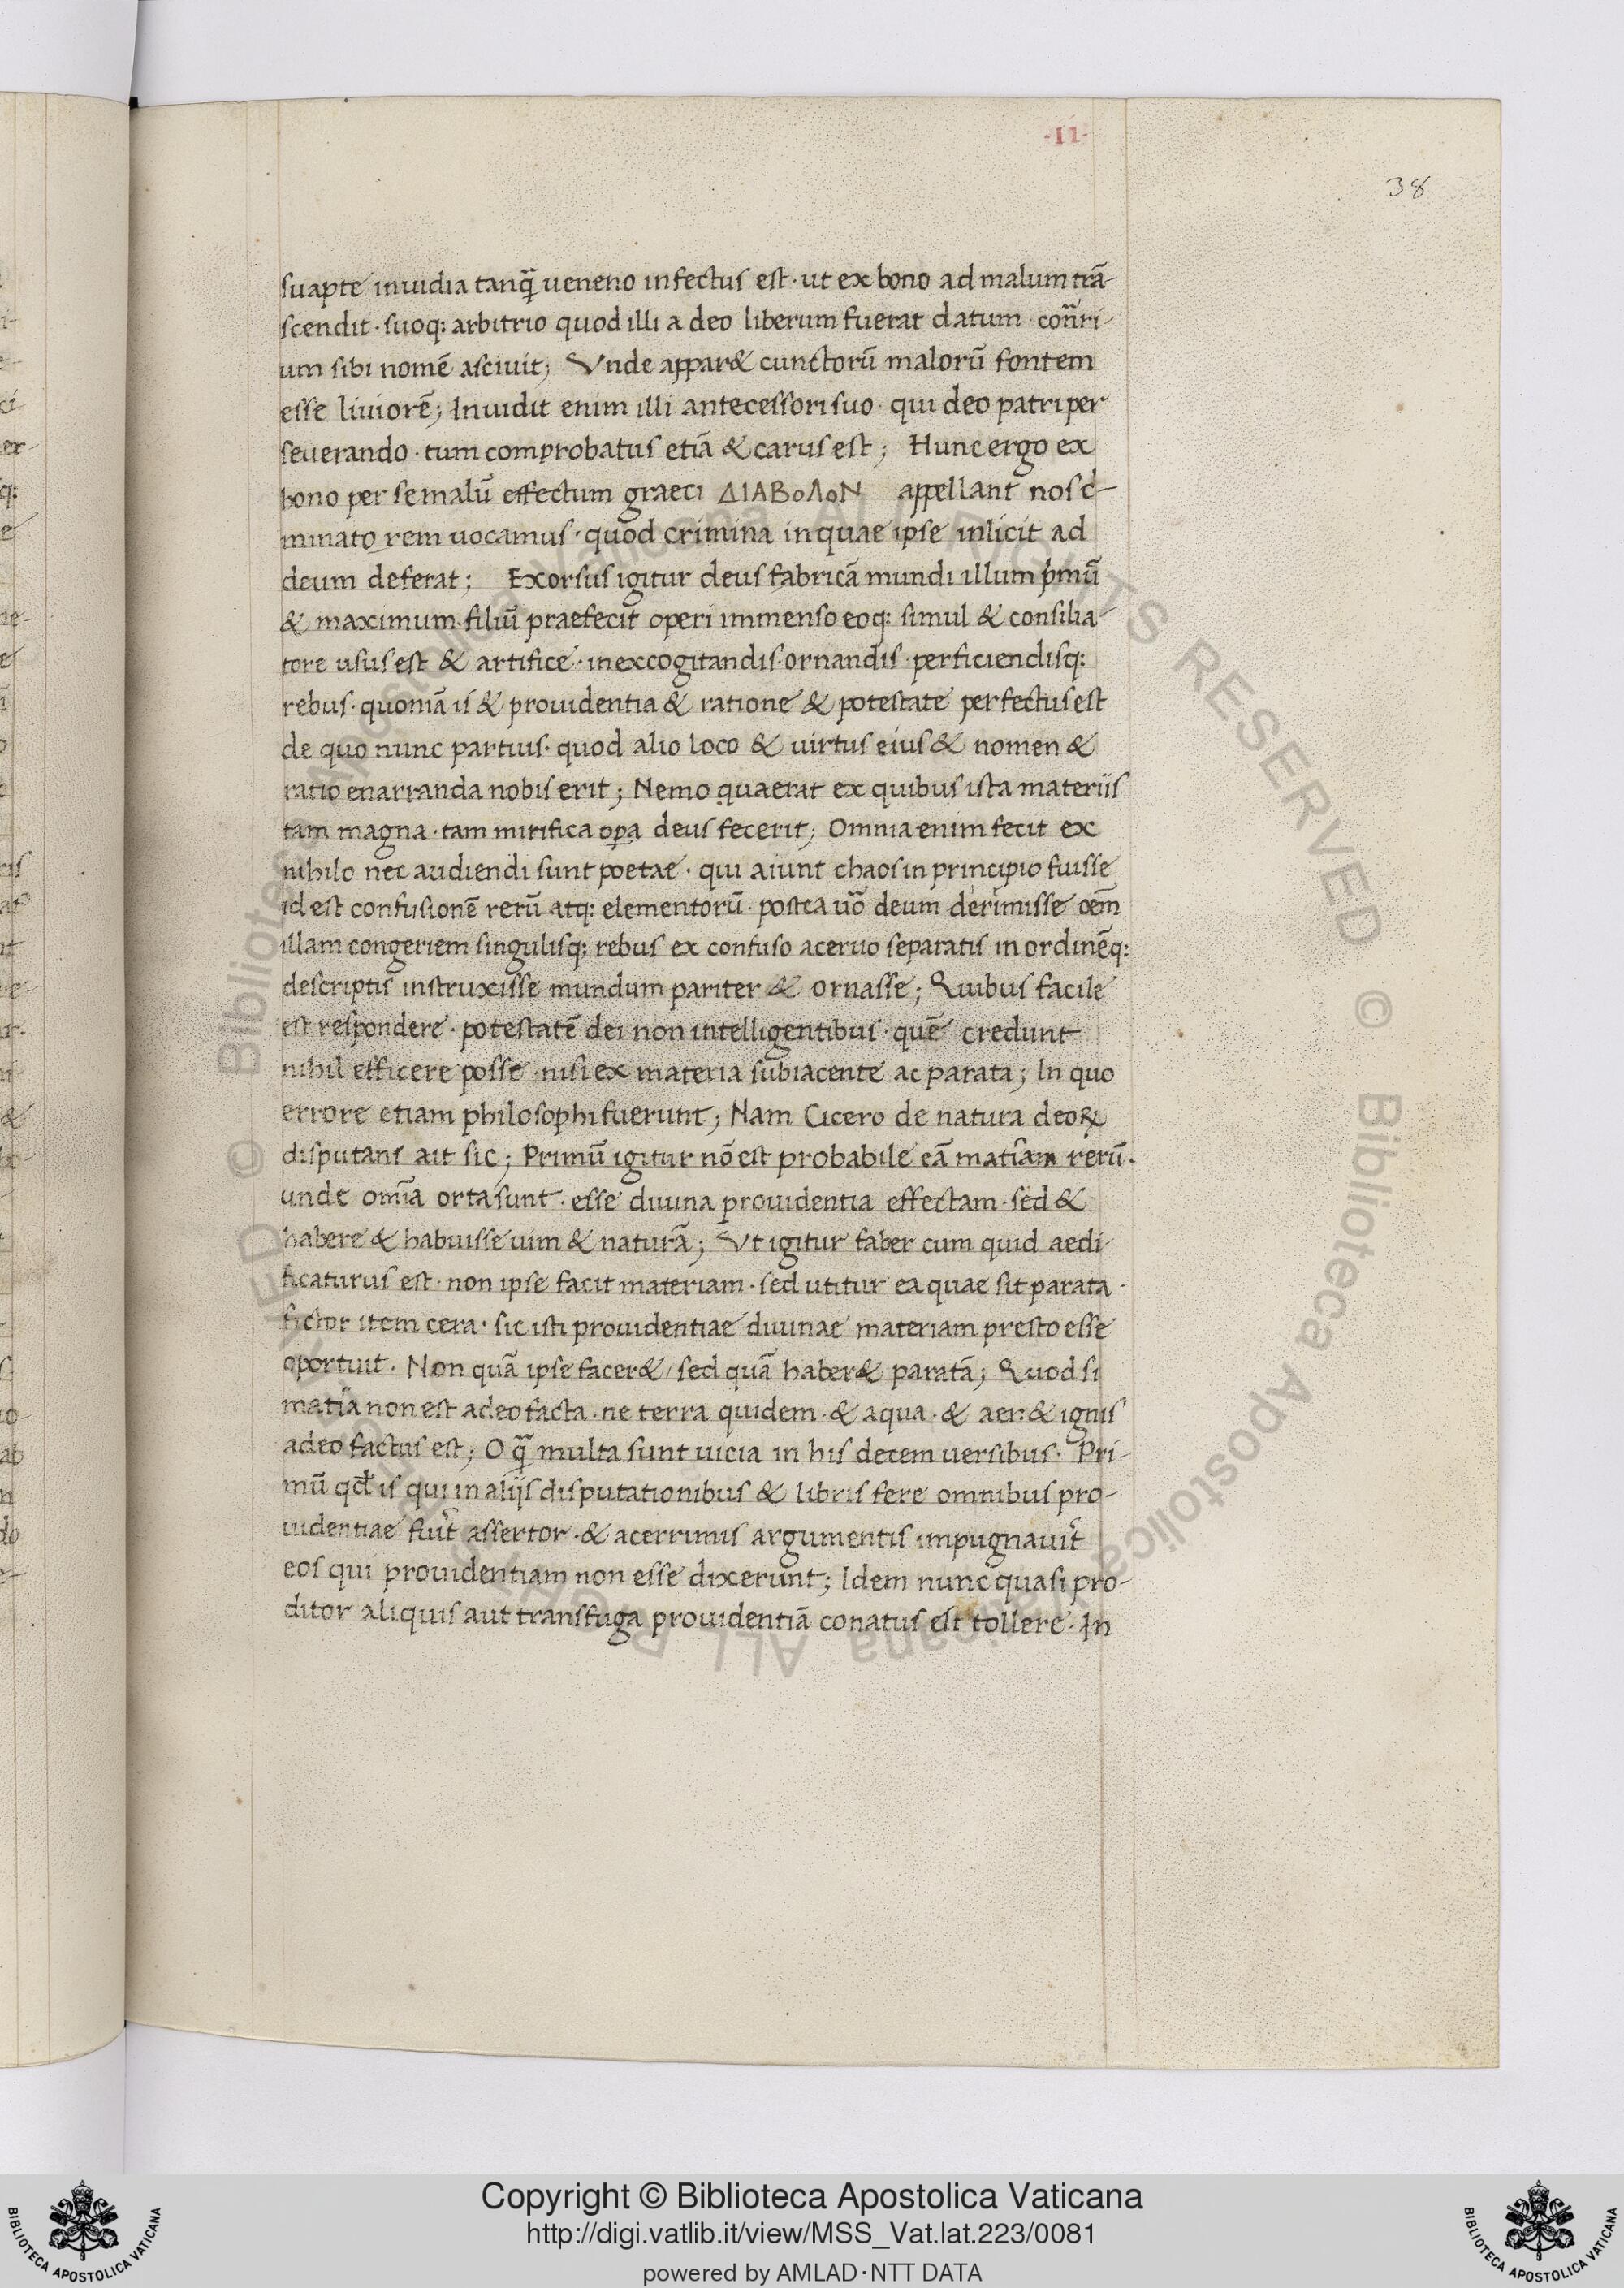 ·II·
38
suapte inuidia tanq̃ ueneno infectus est · ut ex bono ad malum trã-
scendit · suoq; arbitrio quod illi a deo liberum fuerat datum · cõnri-
um sibi nomẽ asciuit; Vnde appar& cunctorũ malorũ fontem
esse liuiorẽ; Inuidit enim illi antecessori suo · qui deo patri per
seuerando · tum comprobatus etiã & carus est; Hunc ergo ex
bono per se malũ effectum graeci ΔΙΑΒοΛοΝ appellant nos c-
minato rem uocamus · quod crimina in quae ipse inlicit ad
deum deferat; Exorsus igitur deus fabricã mundi illum pͥmũ
& maximum · filiũ praefecit operi immenso eoq; simul & consilia-
tore usus est & artifice · in excogitandis · ornandis · perficiendisq;
rebus · quoniã is & prouidentia & ratione & potestate perfectus est
de quo nunc partius · quod alio loco & uirtus eius & nomen &
ratio enarranda nobis erit; Nemo quaerat ex quibus ista materiis
tam magna · tam mirifica oꝑa deus fecerit; Omnia enim fecit ex
nihilo nec audiendi sunt poetae · qui aiunt chaos in principio fuisse
id est confusionẽ rerũ atq; elementorũ · postea uõ deum derimisse oẽm
illam congeriem singulisq; rebus ex confuso aceruo separatis in ordinẽq;
descriptis instruxisse mundum pariter & ornasse; Quibus facile
est respondere · potestatẽ dei non intelligentibus · quẽ credunt
nihil efficere posse · nisi ex materia subiacente ac parata; In quo
errore etiam philosophi fuerunt; Nam Cicero de natura deoꝝ
disputans ait sic; Primũ igitur nõ est probabile eã matȋam rerũ ·
unde omĩa orta sunt · esse diuina prouidentia effectam · sed &
habere & habuisse uim & naturã; Vt igitur faber cum quid aedi-
ficaturus est · non ipse facit materiam · sed utitur ea quae sit parata ·
fictor item cera · sic isti prouidentiae diuinae materiam presto esse
oportuit · Non quã ipse facer& / sed quã haber& paratã; Quod si
matĩa non est a deo facta · ne terra quidem · & aqua · & aer · & ignis
a deo factus est; O q̃ multa sunt uicia in his decem uersibus · Pri-
mũ qđ is qui in aliis disputationibus & libris fere omnibus pro-
uidentiae fuit̉ assertor · & acerrimis argumentis impugnauit̉
eos qui prouidentiam non esse dixerunt; Idem nunc quasi pro-
ditor aliquis aut transfuga prouidentiã conatus est tollere · In
Copyright © Biblioteca Apostolica Vaticana
http://digi.vatlib.it/view/MSS_Vat.lat.223/0081
powered by AMLAD·NTT DATA